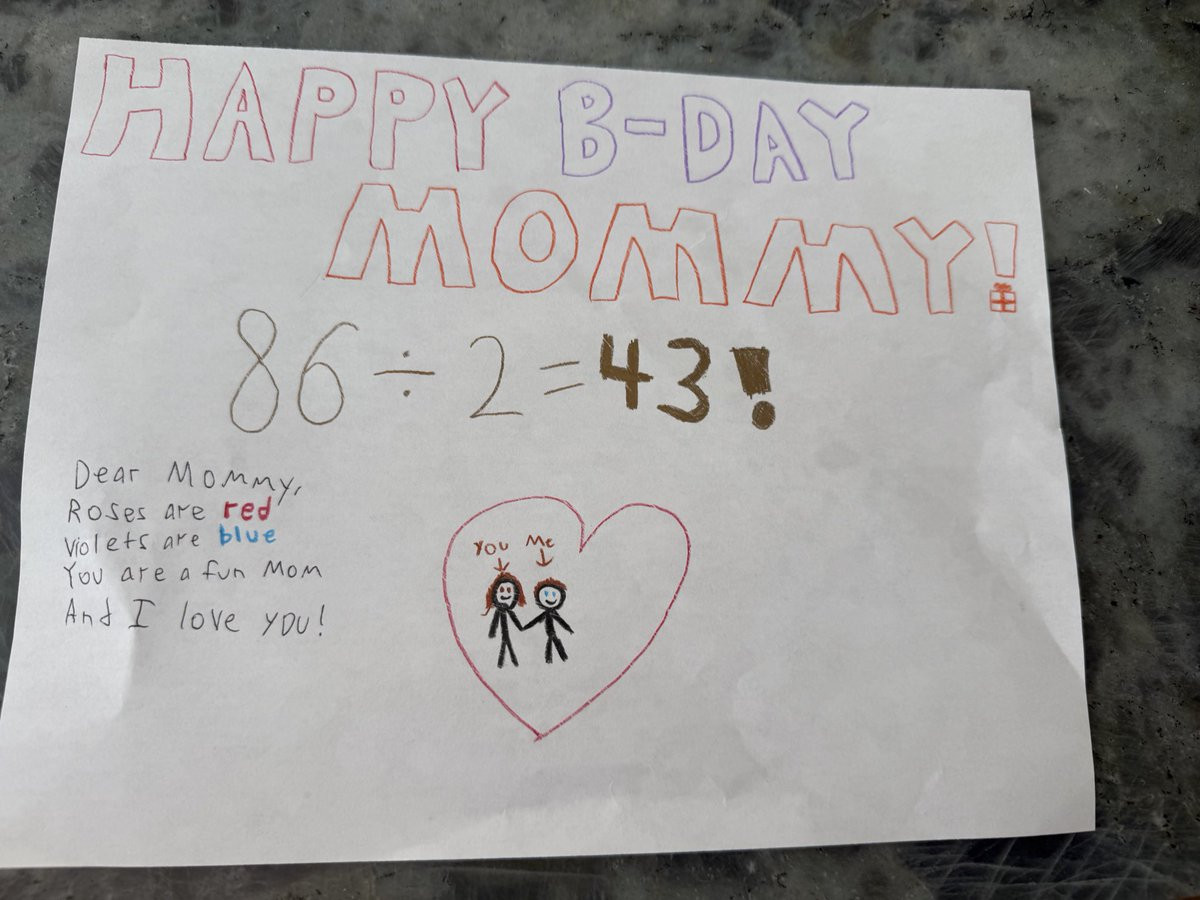 HAPPY B-DAY
MOMMY!
86 ÷ 2 = 43!
Dear Mommy,
Roses are red
Violets are blue
You are a fun Mom
And I love you!
You Me